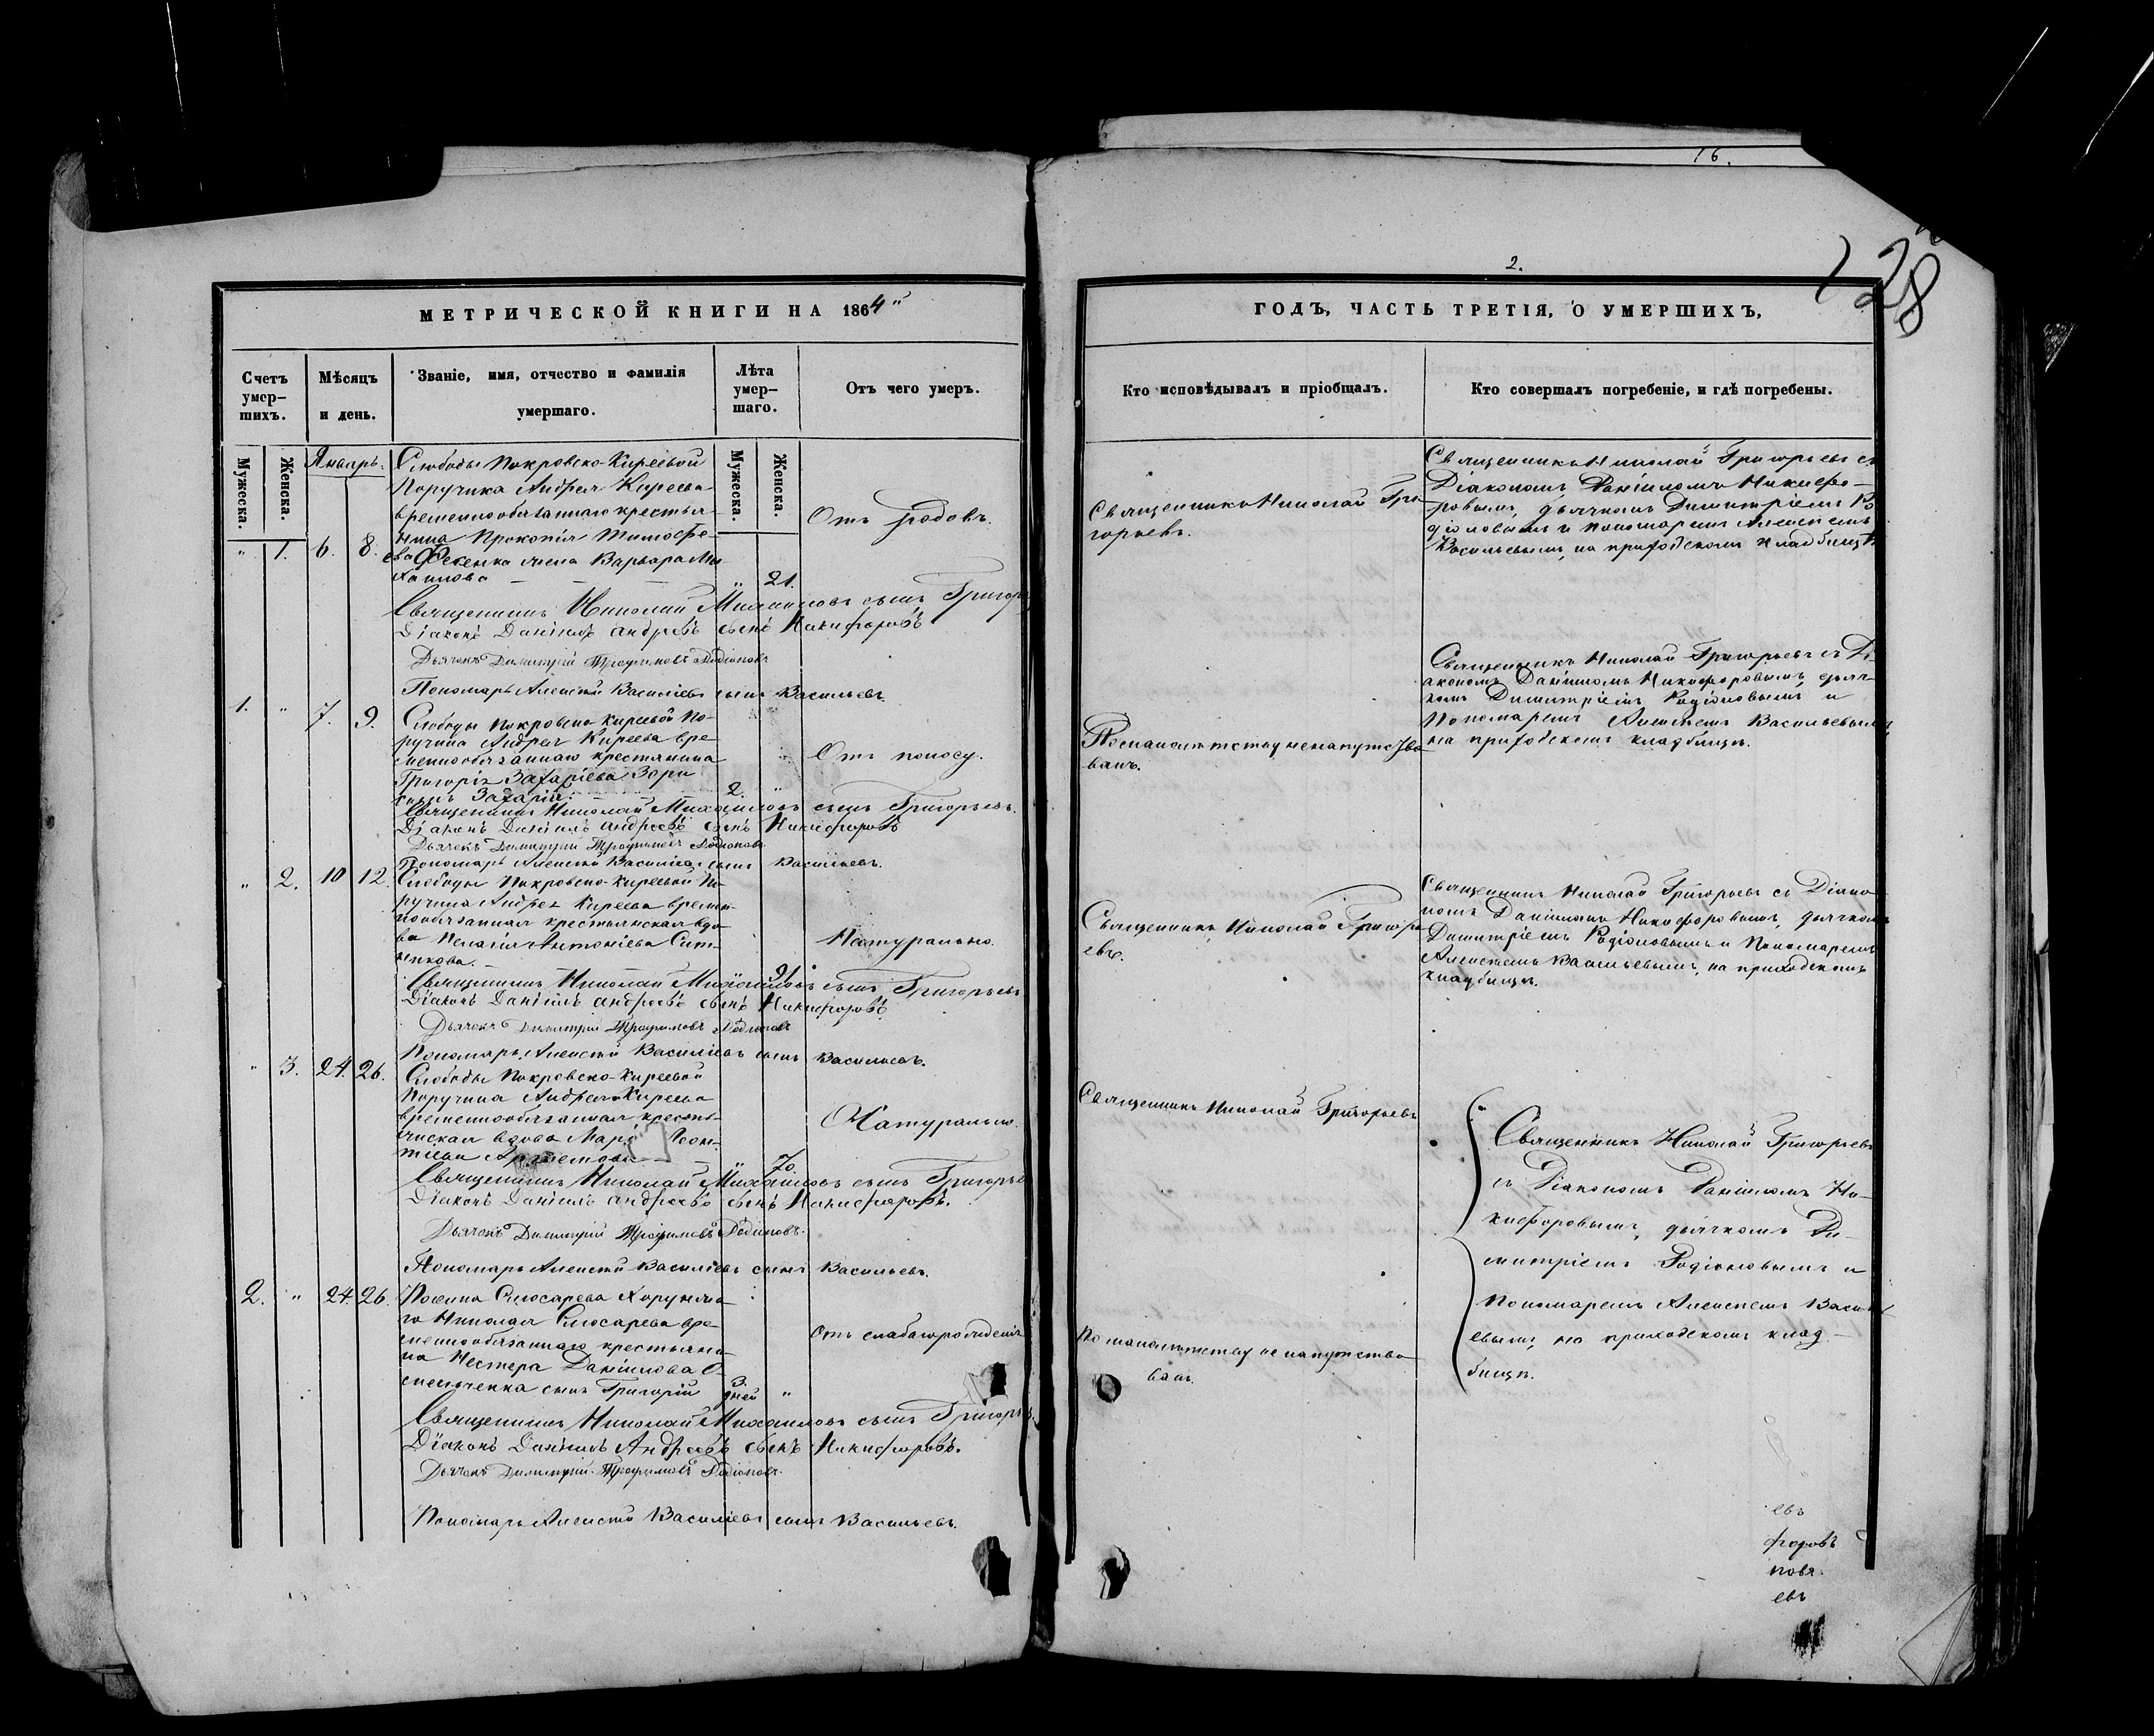 16.
128
2.
МЕТРИЧЕСКОЙ КНИГИ НА 1864
ГОДЪ, ЧАСТЬ ТРЕТІЯ, О УМЕРШИХЪ,
Счетъ умер-
шихъ.
Мѣсяцъ
и день.
Званіе, имя, отчество и фамилія
умершаго.
Лѣта
умер-
шаго.
Отъ чего умеръ.
Кто исповѣдывалъ и пріобщалъ.
Кто совершалъ погребеніе, и гдѣ погребены.
Мужеска.
Женска.
Январь.
Мужеска.
Женска.
" 1. 6. 8.
Слободы Покровско-Киреевой
Поручика Андрея Киреева
временнообязаннаго крестья-
нина Прокопія Тимофе-
ева жена Варвара Ми-
хаилова
" 21.
Отъ родовъ.
Священникъ Николай Гри-
горьевъ.
Священникъ Николай Григорьевъ съ
Діакономъ Даніиломъ Никифо-
ровымъ, дьячкомъ Димитріемъ Ро
діоновымъ и пономаремъ Алексѣемъ
Васильевымъ, на приходскомъ кладбищѣ
Священникъ Николай Михаиловъ сынъ Григорь
Діаконъ Даніилъ Андреевъ сынъ Никифоровъ
Дьячекъ Димитрій Трофимовъ Родіоновъ
Пономарь Алексѣй Василіевъ сынъ Васильевъ.
1. " 7. 9.
Слободы Покровско-Киреевой По-
ручика Андрея Киреева вре-
меннообязаннаго крестянина
Григорія Захаріева Зори
сынъ Захарій.
2. "
Отъ поносу.
По малолѣтству ненапутство
ванъ.
Священникъ Николай Григорьевъ съ Ді-
акономъ Даніиломъ Никифоровымъ, дьяч-
комъ Димитріемъ Родіоновымъ и
Пономаремъ Алексѣемъ Васильевымъ,
на приходскомъ кладбищѣ.
Священникъ Николай Михаиловъ сынъ Григорьевъ.
Діаконъ Даніилъ Андреевъ сынъ Никифоровъ
Дьячекъ Димитрій Трофимовъ Родіоновъ
Пономарь Алексѣй Василіевъ сынъ Васильевъ.
" 2. 10 12.
Слободы Покровско-Киреевой По-
ручика Андрея Киреева времен-
нообязанная крестьянская вдо-
ва Пелагія Антоніева
91.
Натурально.
Священникъ Николай Григорь
евъ.
Священникъ Николай Григорьевъ съ Діако-
номъ Даніиломъ Никифоровымъ, дьячкомъ
Димитріемъ Родіоновымъ и Пономаремъ
Алексѣемъ Васильевымъ, на приходскомъ
кладбищѣ.
Священникъ Николай Михаиловъ сынъ Григорьевъ
Діаконъ Даніилъ Андреевъ сынъ Никифоровъ
Дьячекъ Димитрій Трофимовъ Родіоновъ
Пономарь Алексѣй Василіевъ сынъ Васильевъ.
" 3. 24. 26.
Слободы Покровско-Киреевой
Поручика Андрея Киреева
временнообязанная кресть-
янская вдова Марія Леон-
тіева
" 70.
Натурально.
Священникъ Николай Григорьевъ
Священникъ Николай Григорьевъ
съ Діакономъ Даніиломъ Ни-
кифоровымъ, дьячкомъ Ди-
митріемъ Родіоновымъ и
Пономаремъ Алексѣемъ Василь
евымъ, на приходскомъ клад-
бищѣ.
Священникъ Николай Михаиловъ сынъ Григорье
Діаконъ Даніилъ Андреевъ сынъ Никифоровъ.
Дьячекъ Димитрій Трофимовъ Родіоновъ.
Пономарь Алексѣй Василіевъ сынъ Васильевъ.
2. " 24. 26.
Поселка Слюсарева Хорунжа-
го Николая Слюсарева вре-
меннообязаннаго крестьяни-
на Нестера Даніилова
сынъ Григорій
3.
дней "
Отъ слабаго рожденія
По малолѣтству не напутство
ванъ.
Священникъ Николай Михаиловъ сынъ Григорьев.
Діаконъ Даніилъ Андреевъ сынъ Никифоровъ.
Дьячекъ Димитрій Трофимовъ Родіоновъ.
Пономарь Алексѣй Василіевъ сынъ Васильевъ.
евъ
форовъ
новъ.
евъ